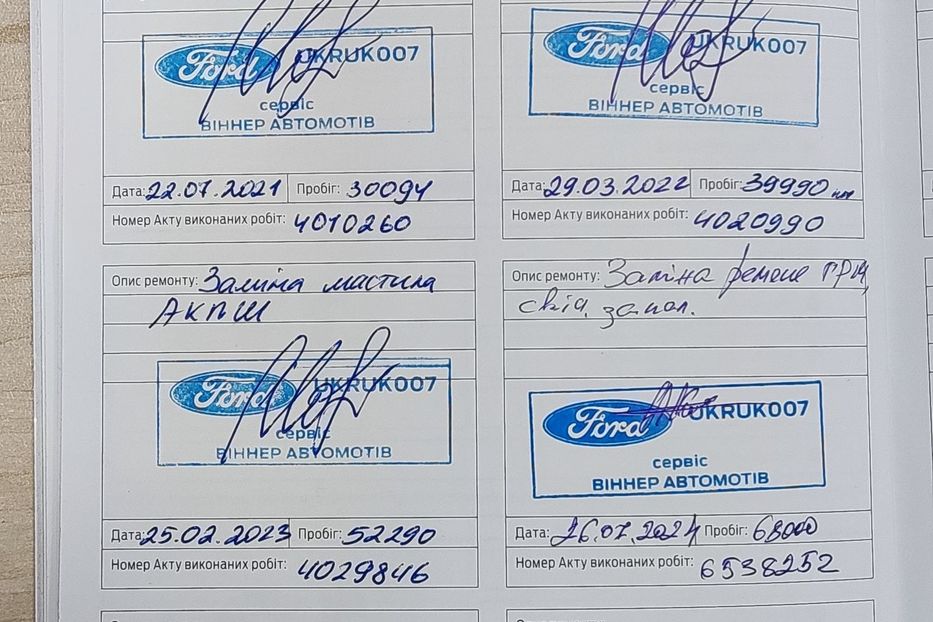 Ford UKRUK007
сервіс
ВІННЕР АВТОМОТІВ
Дата: 22.07.2021 Пробіг: 30094
Номер Акту виконаних робіт: 4010260
Ford UKRUK007
сервіс
ВІННЕР АВТОМОТІВ
Дата: 29.03.2022 Пробіг: 39990 км
Номер Акту виконаних робіт: 4020990
Опис ремонту: Заміна мастила
АКПП
Ford UKRUK007
сервіс
ВІННЕР АВТОМОТІВ
Дата: 25.02.2023 Пробіг: 52290
Номер Акту виконаних робіт: 4029846
Опис ремонту: Заміна ременя ГРМ,
свіч. запал.
Ford UKRUK007
сервіс
ВІННЕР АВТОМОТІВ
Дата: 26.07.2024 Пробіг: 68000
Номер Акту виконаних робіт: 6538252